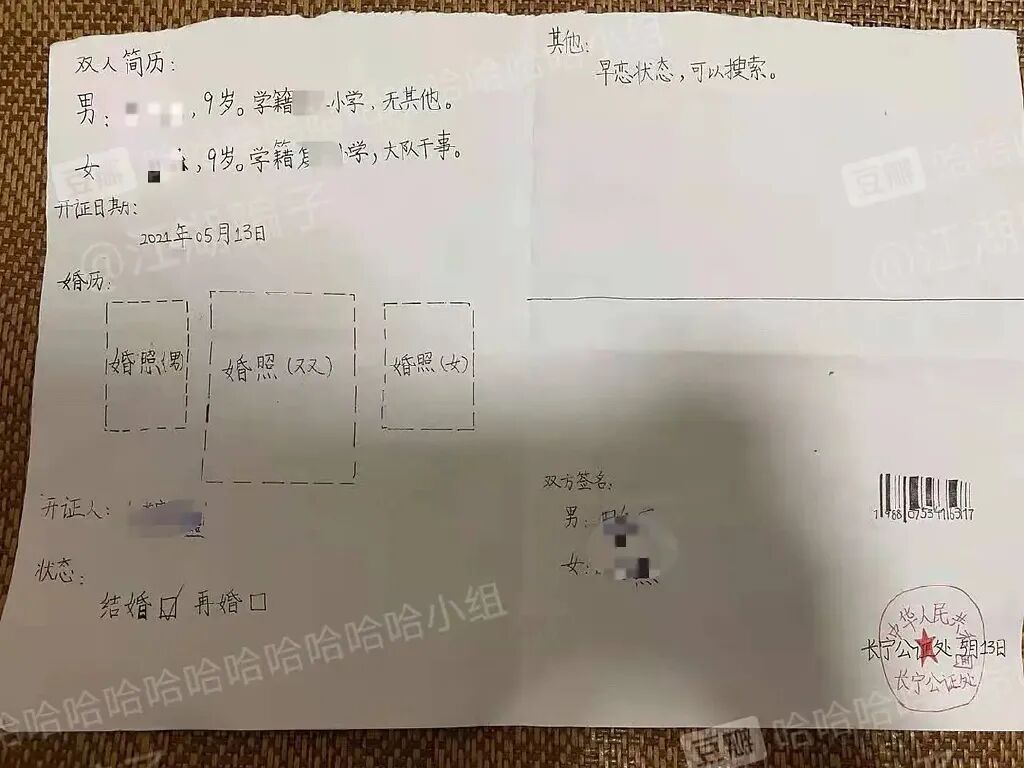 双人简历：
男：，9岁。学籍小学，无其他。
女，9岁。学籍小学，大队干事。
开证日期：
2021年05月13日
婚历：
婚照(男)
婚照(双)
婚照(女)
开证人：
状态：
结婚☑ 再婚☐
其他：
早恋状态，可以搜索。
双方签名：
男：
女：
中华人民共
长宁公证处 5月13日
长宁公证处
豆瓣
@江湖骗子
哈哈哈哈哈哈哈哈哈哈小组